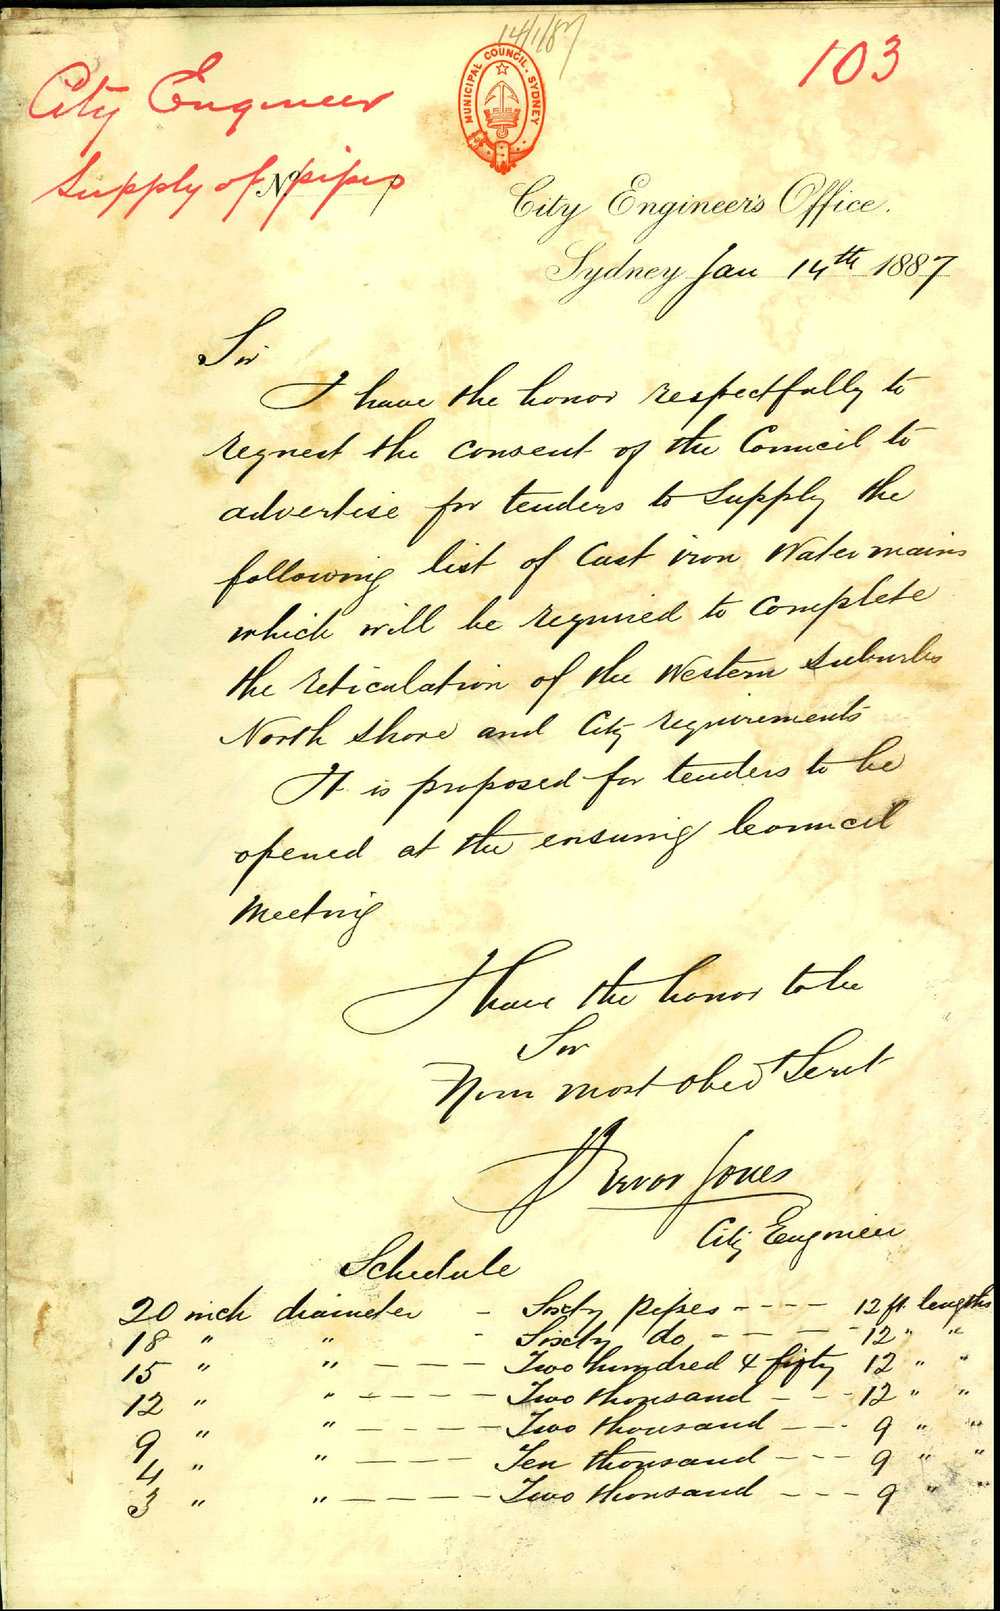 14/1/87
103
City Engineer
Supply of pipes
No.
MUNICIPAL COUNCIL. SYDNEY
City Engineer's Office.
Sydney Jan 14th 1887
Sir
I have the honor respectfully to
request the consent of the Council to
advertise for tenders to supply the
following list of Cast iron Water mains
which will be required to complete
the reticulation of the Western Suburbs
North Shore and City requirements
It is proposed for tenders to be
opened at the ensuing Council
Meeting
I have the honor to be
Sir
Your most obedt Servt
Trevor Jones
City Engineer
Schedule
20 inch diameter - Sixty pipes - - - - 12 ft. lengths
18 " " - Sixty do - - - - 12 " "
15 " " - - - - Two hundred & fifty 12 " "
12 " " - - - - - Two thousand - - - 12 " "
9 " " - - - - - Two thousand - - - 9 " "
4 " " - - - - Ten thousand - - - 9 " "
3 " " - - - - - Two thousand - - - 9 " "